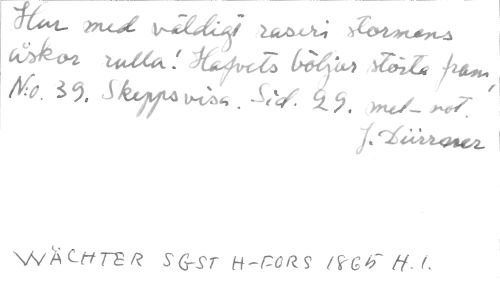 Hur med väldigt raseri stormens
åskor rulla! Hafvets böljor störta fram,
N:o. 39. Skeppsvisa. Sid. 29. mel-not.
J. Dürrner
WÄCHTER SGST H-FORS 1865 H.1.